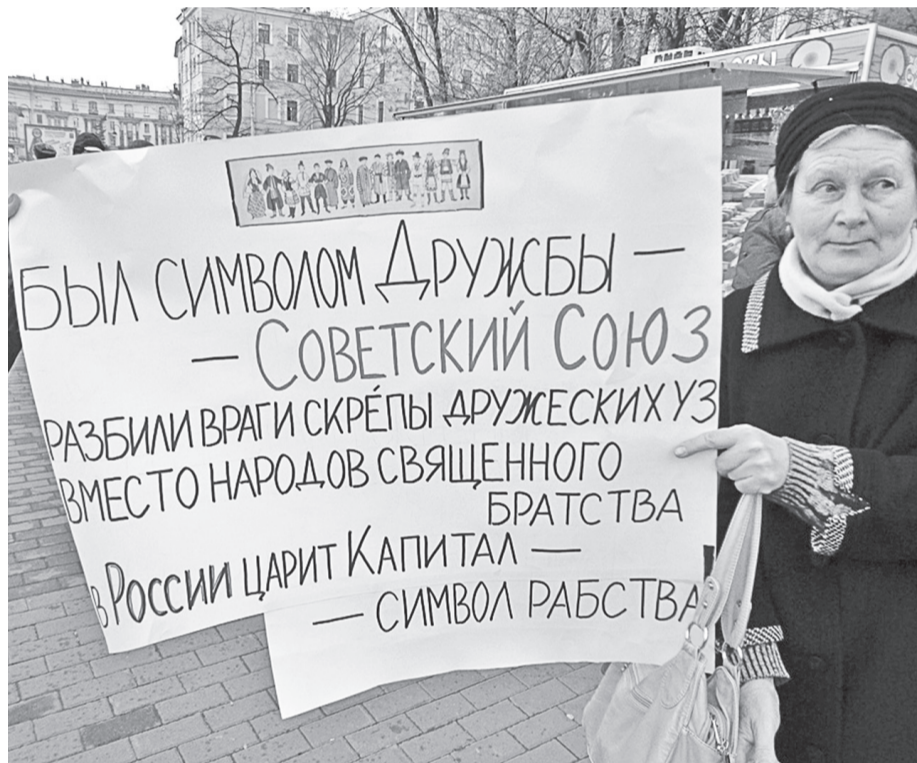 БЫЛ СИМВОЛОМ ДРУЖБЫ —
— СОВЕТСКИЙ СОЮЗ
РАЗБИЛИ ВРАГИ СКРЕ́ПЫ ДРУЖЕСКИХ УЗ
ВМЕСТО НАРОДОВ СВЯЩЕННОГО
БРАТСТВА
в РОССИИ ЦАРИТ КАПИТАЛ —
— СИМВОЛ РАБСТВА